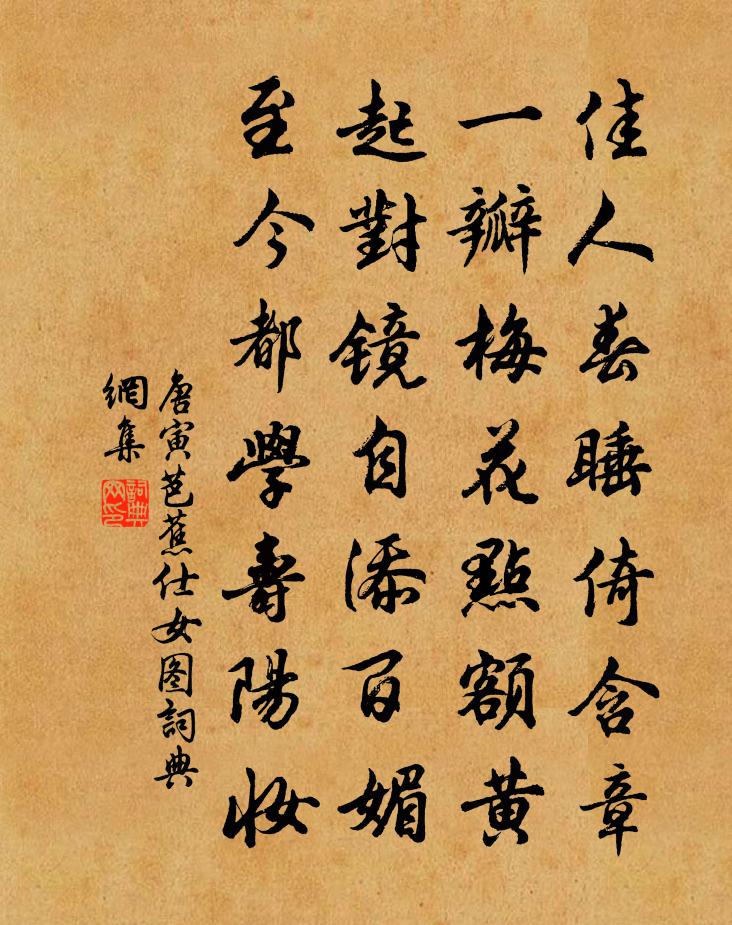 佳人春睡倚含章
一瓣梅花點額黃
起對鏡自添百媚
至今都學壽陽妝
唐寅芭蕉仕女图詞典
網集
詞典
网印